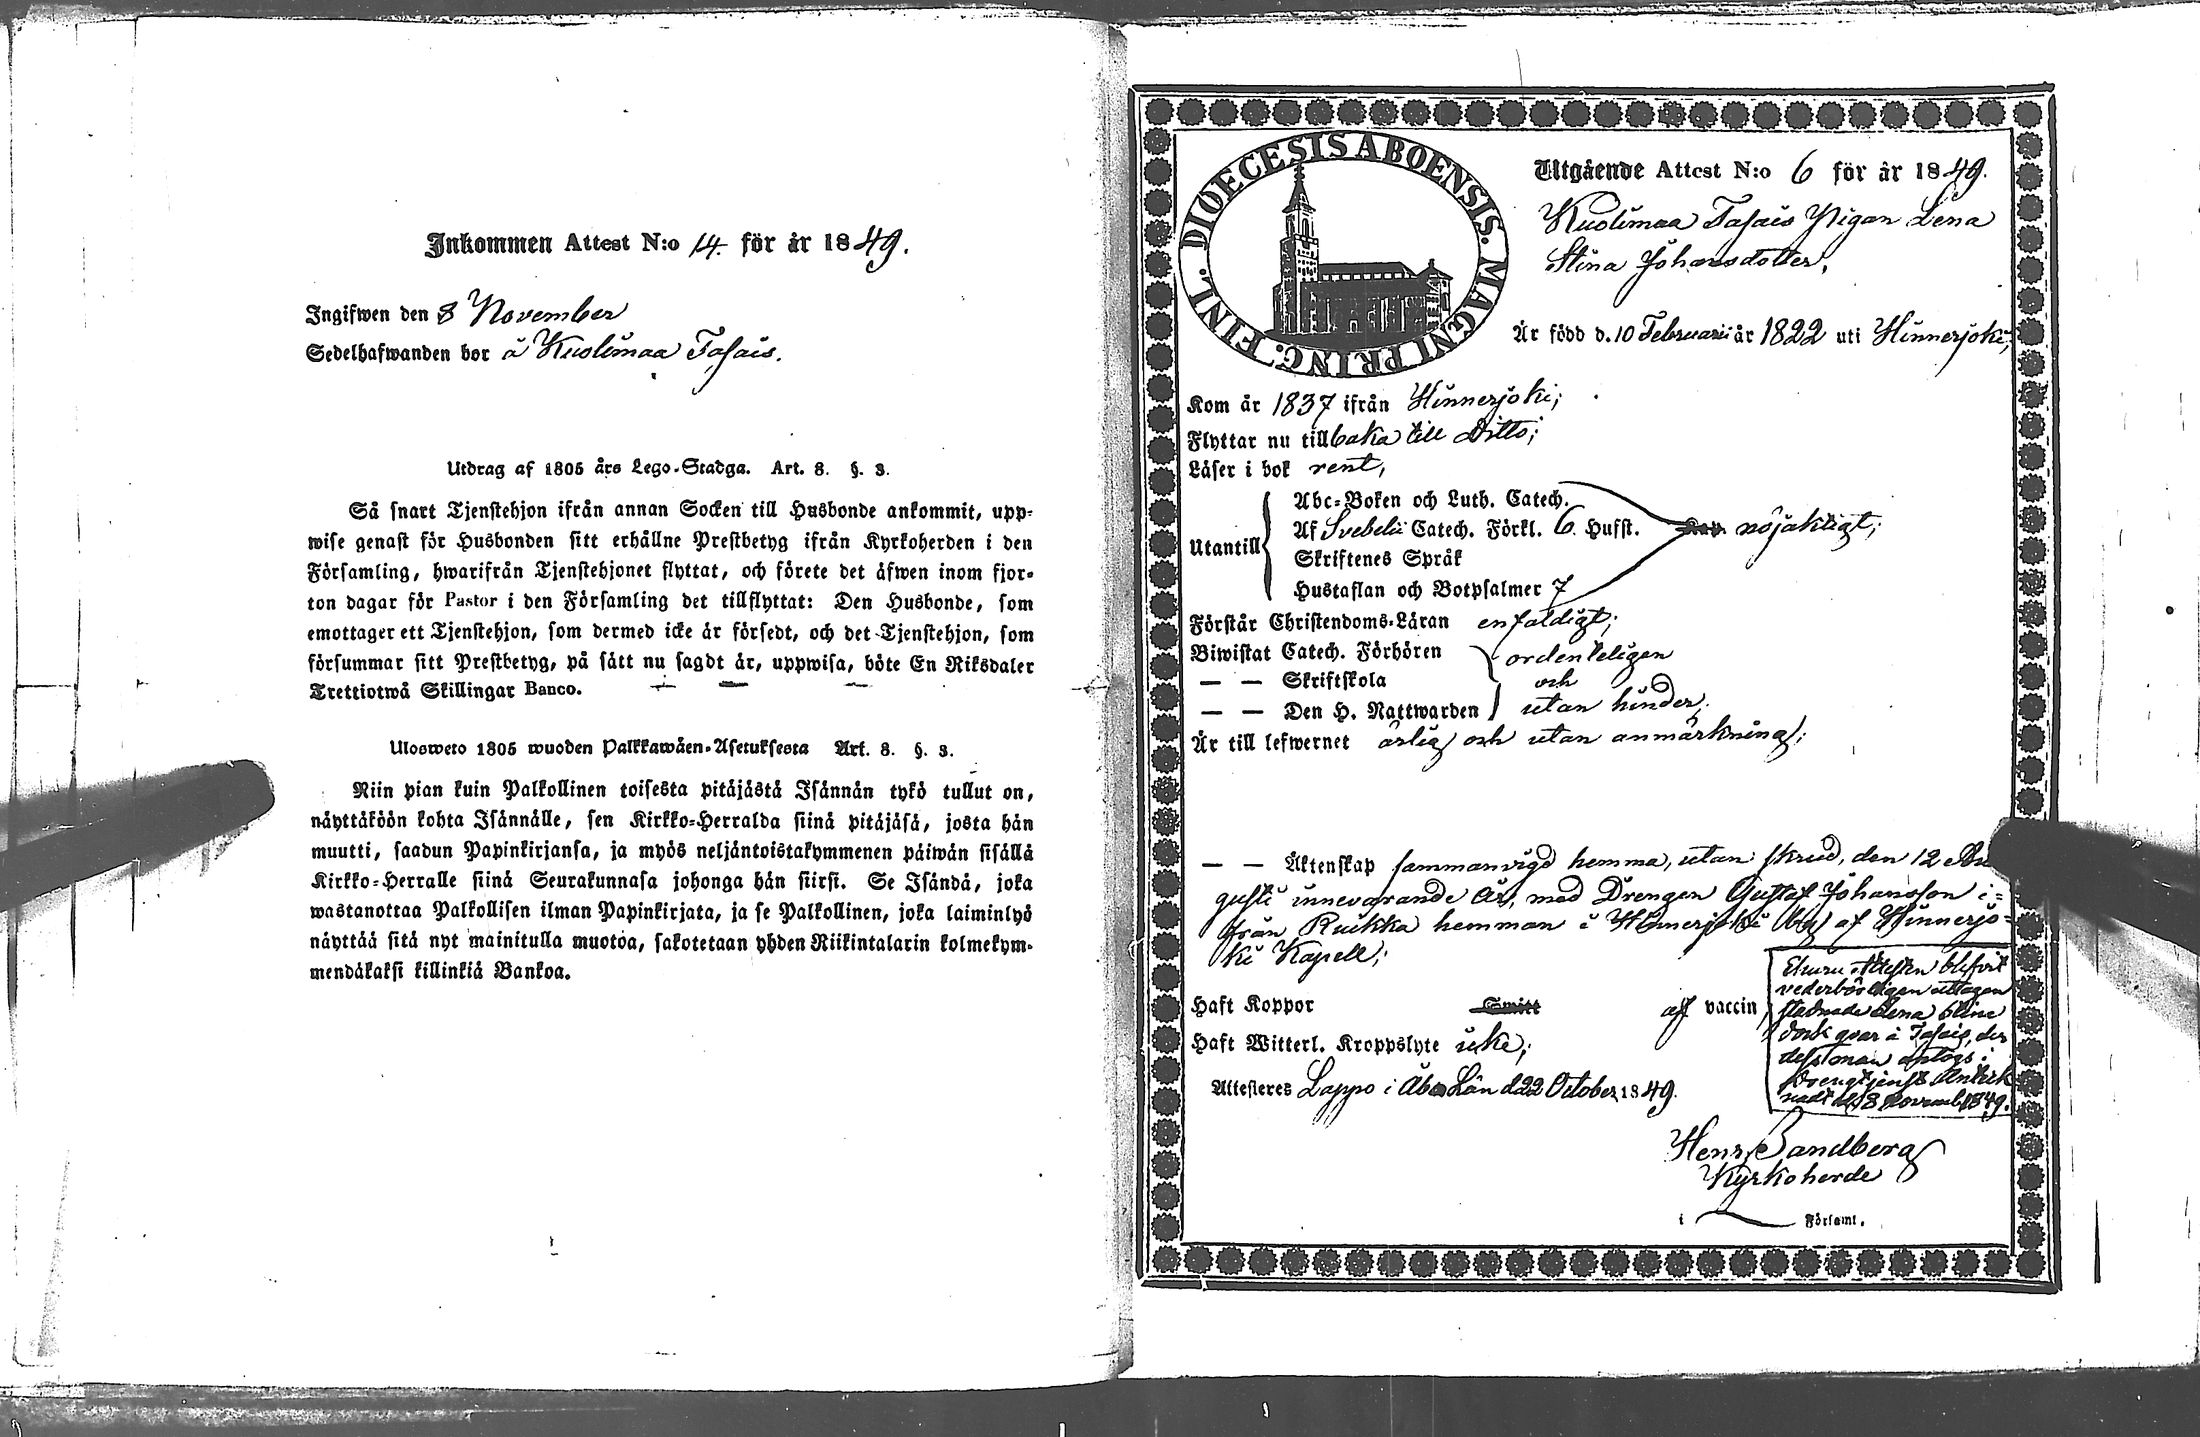 Inkommen Attest N:o 14. för år 1849.
Ingifwen den 8 November
Sedelhafwanden bor å Kuolimaa Tasais.
Utdrag af 1805 års Lego-Stadga. Art. 8. §. 3.
Så snart Tjenstehjon ifrån annan Socken till Husbonde ankommit, upp-
wise genast för Husbonden sitt erhållne Prestbetyg ifrån Kyrkoherden i den
Församling, hwarifrån Tjenstehjonet flyttat, och förete det äfwen inom fjor-
ton dagar för Pastor i den Församling det tillflyttat: Den Husbonde, som
emottager ett Tjenstehjon, som dermed icke är försedt, och det Tjenstehjon, som
försummar sitt Prestbetyg, på sätt nu sagdt är, uppwisa, böte En Riksdaler
Trettiotwå Skillingar Banco.
Ulosweto 1805 wuoden Palkkawäen-Asetuksesta Art. 8. §. 3.
Niin pian kuin Palkollinen toisesta pitäjästä Isännän tykö tullut on,
näyttäköön kohta Isännälle, sen Kirkko-Herralda siinä pitäjäsä, josta hän
muutti, saadun Papinkirjansa, ja myös neljäntoistakymmenen päiwän sisällä
Kirkko-Herralle siinä Seurakunnasa johonga hän siirsi. Se Isändä, joka
wastanottaa Palkollisen ilman Papinkirjata, ja se Palkollinen, joka laiminlyö
näyttää sitä nyt mainitulla muotoa, sakotetaan yhden Riikintalarin kolmekym-
mendäkaksi killinkiä Bankoa.
DIOECESIS ABOENSIS. MAGNI PRINC. FINL.
Utgående Attest N:o 6 för år 1849.
Kuolimaa Tasais Pigan Lena
Stina Johansdotter,
Är född d. 10 Februarii år 1822 uti Hinnerjoki;
Kom år 1837 ifrån Hinnerjoki;
Flyttar nu tillbaka till Ditto;
Läser i bok rent,
Utantill
Abc-Boken och Luth. Catech.
Af Svebelii Catech. Förkl. 6. Hufst. Kap. nöjaktigt;
Skriftenes Språk
Hustaflan och Botpsalmer 7
Förstår Christendoms-Läran enfaldigt;
Biwistat Catech. Förhören ordenteligen
— — Skriftskola och
— — Den H. Nattwarden utan hinder;
Är till lefwernet ärlig och utan anmärkning;
— — Äktenskap sammanvigd hemma, utan skrud, den 12 Au
gusti innevarande År, med Drengen Gustaf Johansson i-
från Ruikka hemman i Hinnerjoki by af Hinnerjo-
ki Kapell;
Haft Koppor Smitt af vaccin
Haft Witterl. Kroppslyte icke;
Ehuru Attesten blifvit
vederbörligen uttagen
stadnade Lena Stina
dock qvar å Tasais, der
dess man antogs i
Drengtjenst Antek
nadt d. 8 Novemb. 1849.
Attesteres Lappo i Åbo Län d. 22 October 1849.
Henr. Sandberg
Kyrkoherde
i — Förſaml.